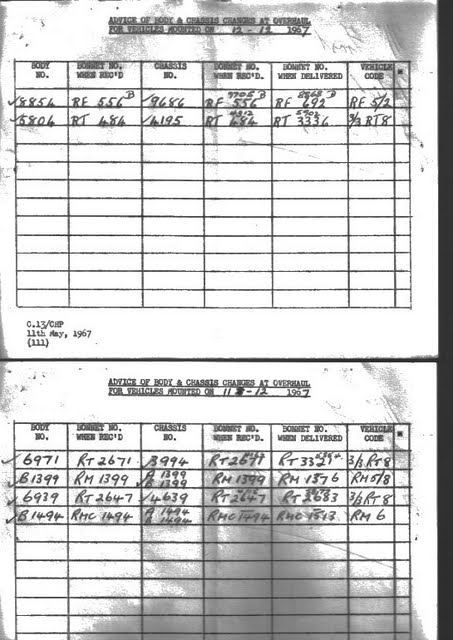 ADVICE OF BODY & CHASSIS CHANGES AT OVERHAUL
FOR VEHICLES MOUNTED ON 12-12 1967
BODY NO. BONNET NO. WHEN REC'D CHASSIS NO. BONNET NO. WHEN REC'D. BONNET NO. WHEN DELIVERED VEHICLE CODE *
✓8854 RF 556 B ✓9686 RF 556 B RF 692 D RF 5/2
✓5804 RT 484 ✓4195 RT 484 RT 3336 3/3 RT8
C.13/CHP
11th May, 1967
(111)
ADVICE OF BODY & CHASSIS CHANGES AT OVERHAUL
FOR VEHICLES MOUNTED ON 11-12 1967
BODY NO. BONNET NO. WHEN REC'D CHASSIS NO. BONNET NO. WHEN REC'D. BONNET NO. WHEN DELIVERED VEHICLE CODE *
✓6971 RT 2671 ✓3994 RT 2671 RT 3321 3/3 RT8
✓B1399 RM 1399 A 1399 ✓B 1399 RM 1399 RM 1376 RM 5/8
✓6939 RT 2647 ✓4639 RT 2647 3/3 RT8
✓B1494 RMC 1494 A 1494 ✓B 1494 RMC 1494 RMC 1513 RM 6